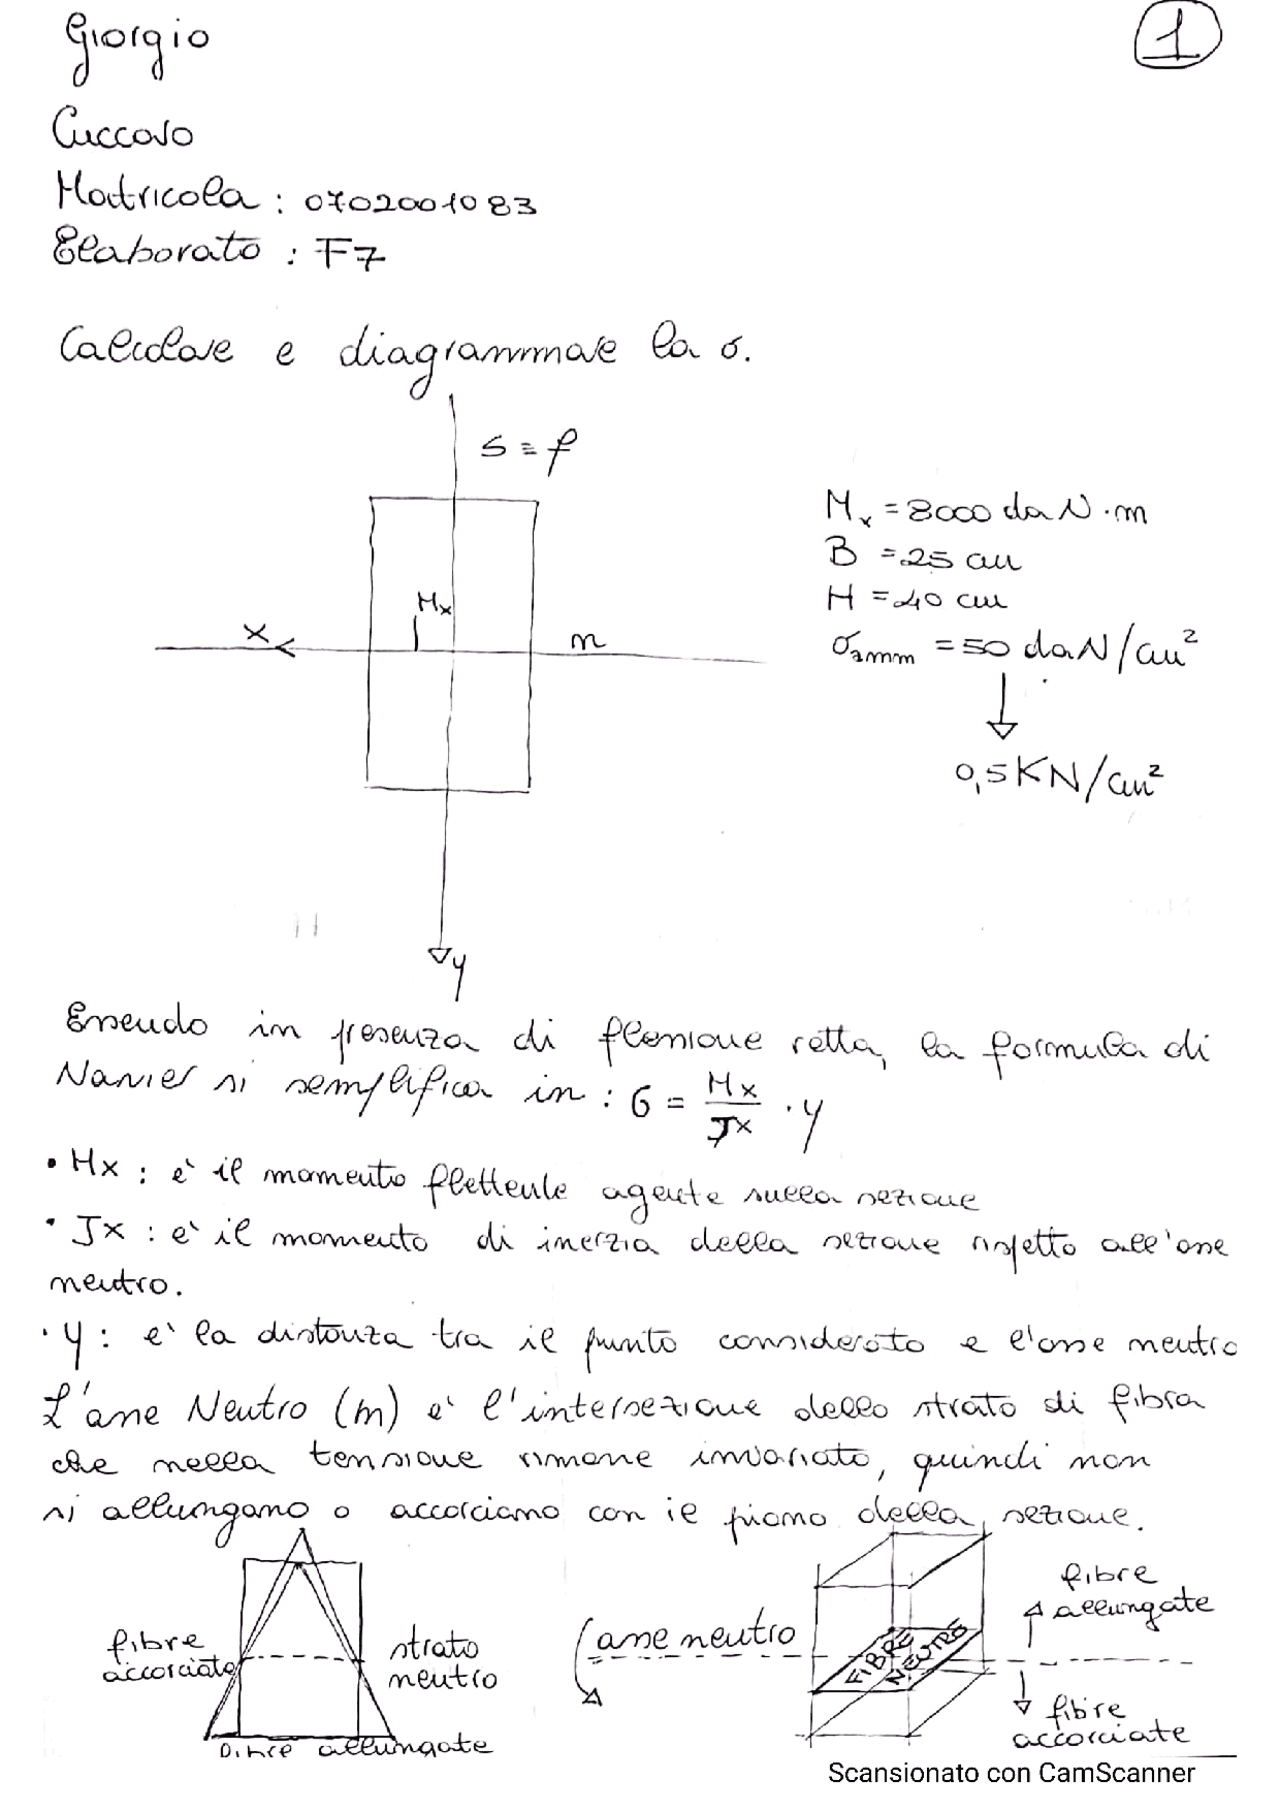 Giorgio
1
Cuccaro
Matricola : 0702001083
Elaborato : F7
Calcolare e diagrammare la σ.
S ≡ f
Mx = 8000 daN·m
B = 25 cm
H = 40 cm
Mx
x
n
σamm = 50 daN/cm²
0,5 KN/cm²
y
Essendo in presenza di flessione retta, la formula di
Navier si semplifica in : σ = Mx/Jx · y
• Mx : è il momento flettente agente sulla sezione
• Jx : è il momento di inerzia della sezione rispetto all'asse
neutro.
• y : è la distanza tra il punto considerato e l'asse neutro
L'asse Neutro (n) è l'intersezione dello strato di fibra
che nella tensione rimane invariato, quindi non
si allungano o accorciano con il piano della sezione.
fibre
accorciate
strato
neutro
fibre allungate
asse neutro
FIBRE
NEUTRE
fibre
allungate
fibre
accorciate
Scansionato con CamScanner